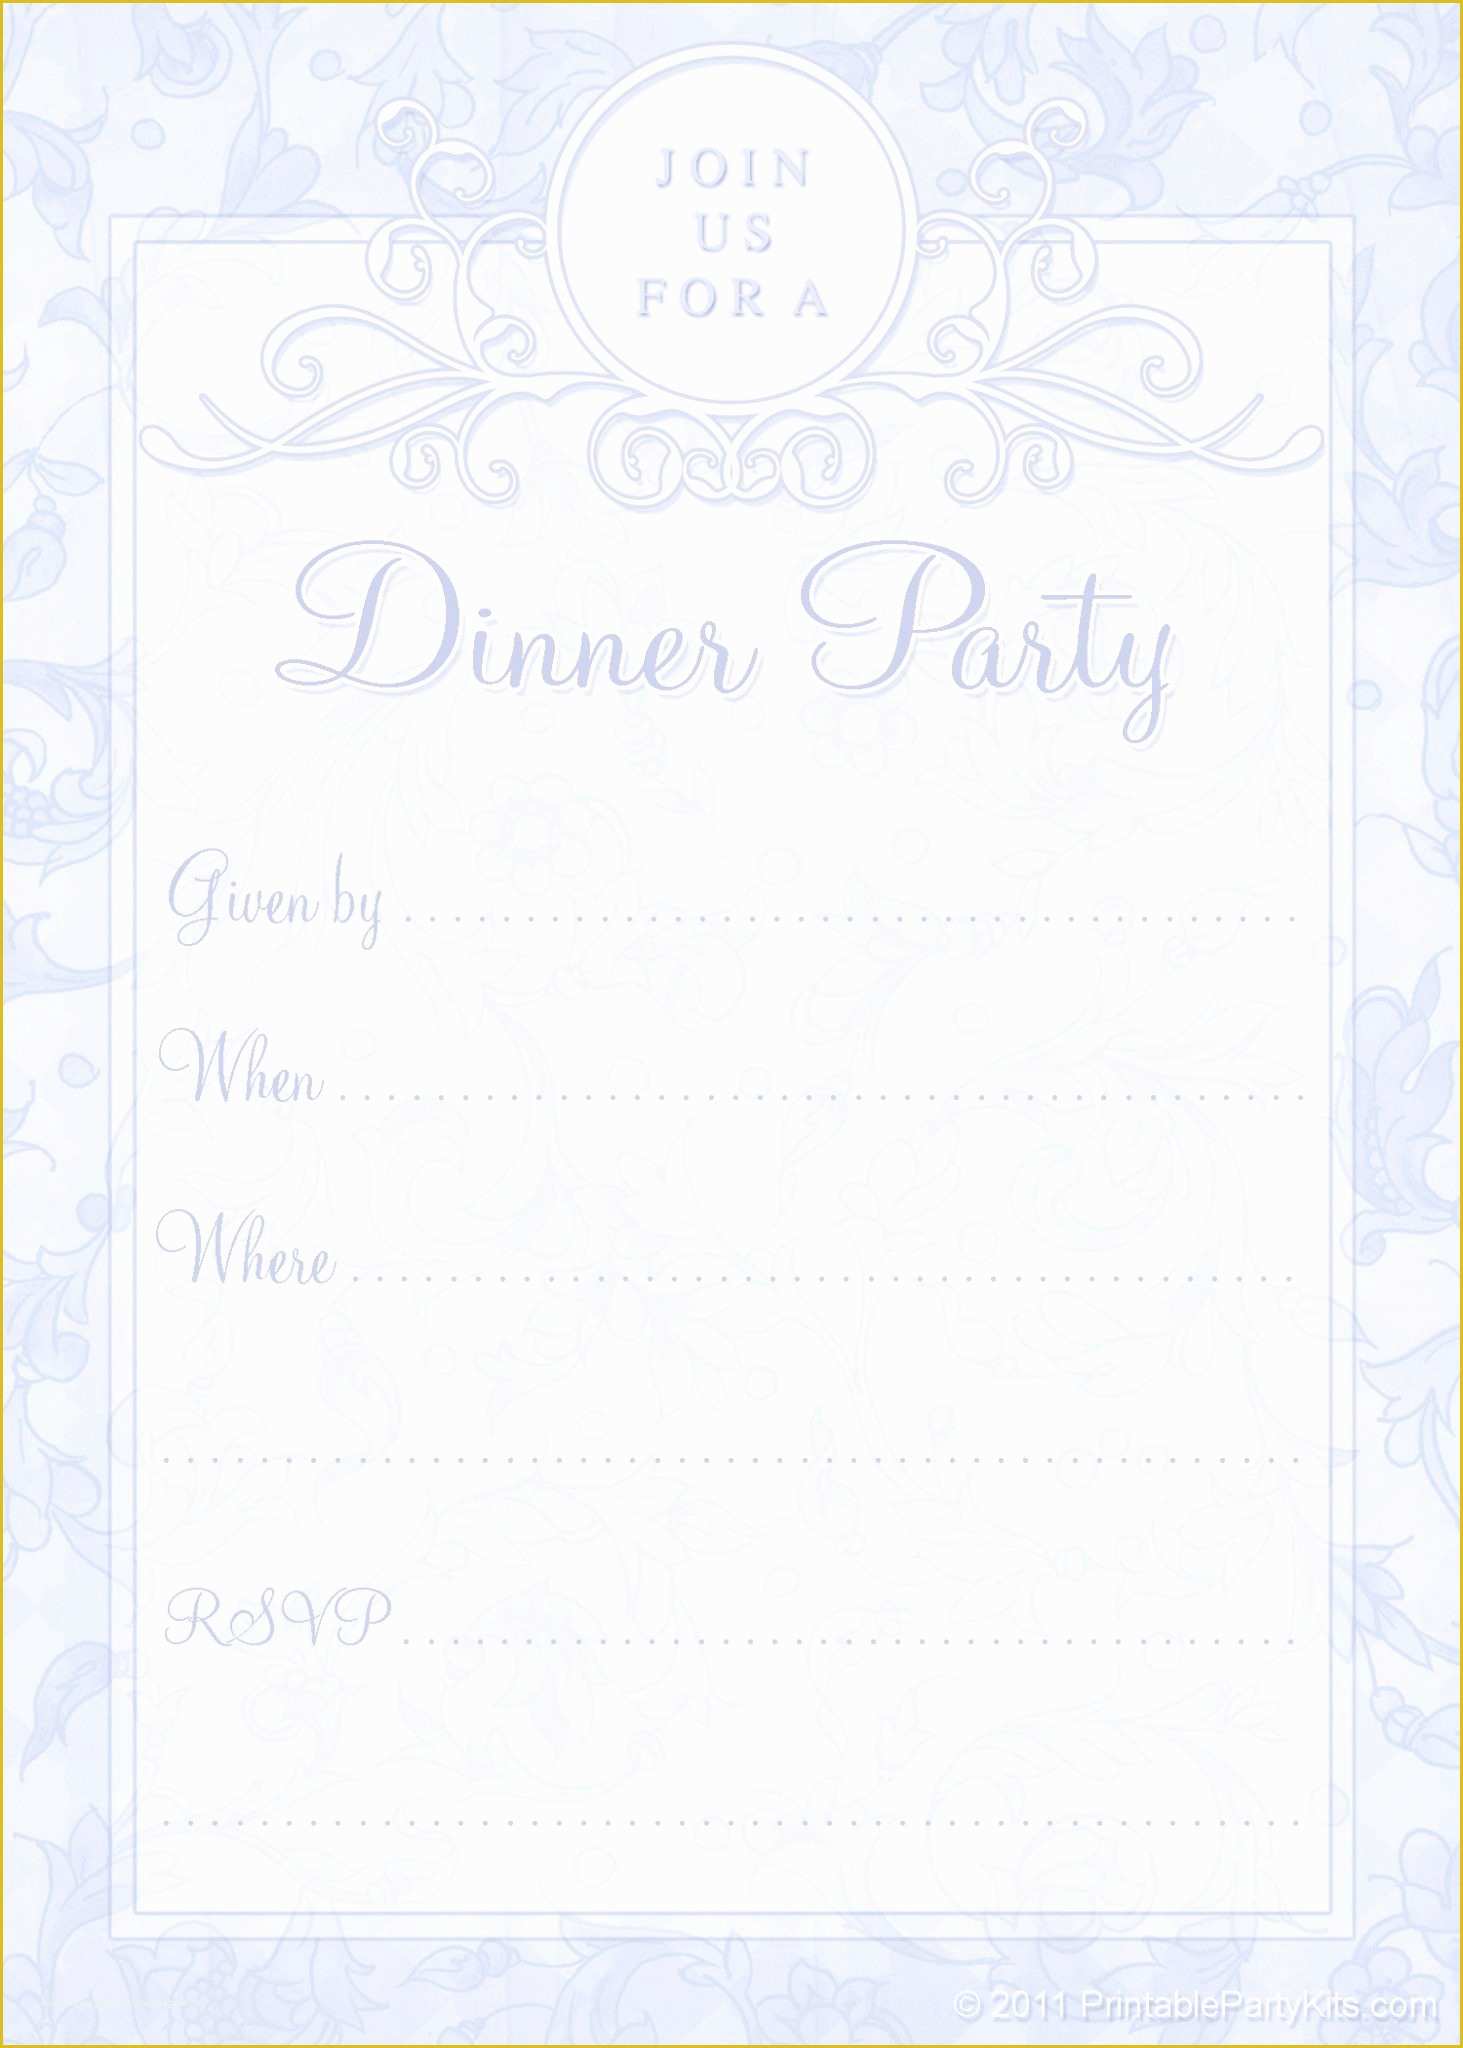 JOIN
US
FOR A
Dinner Party
Given by
When
Where
RSVP
© 2011 PrintablePartyKits.com